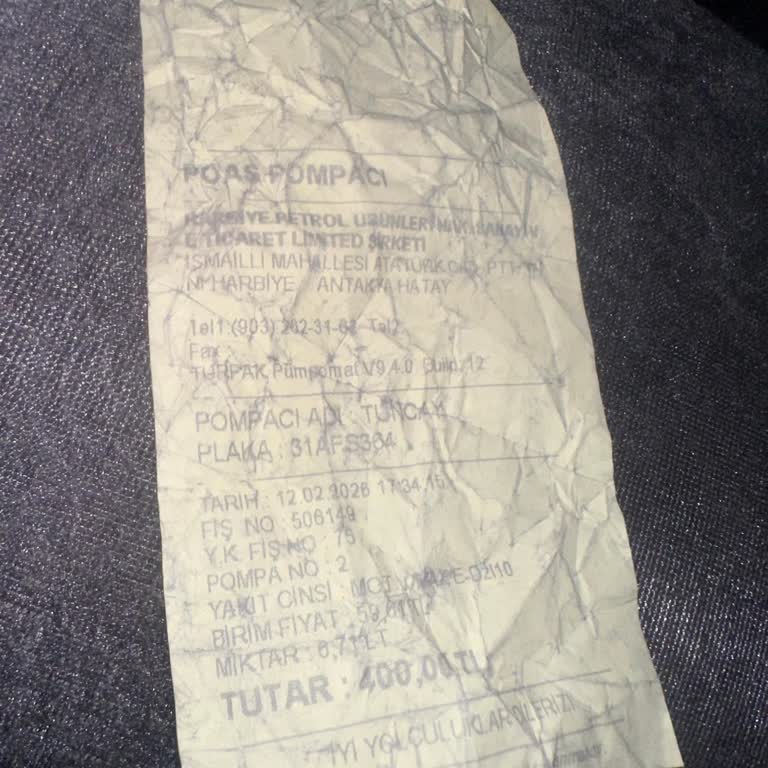 POAŞ POMPACI
HARBİYE PETROL ÜRÜNLERİ SANAYİ V
E TİCARET LİMİTED ŞİRKETİ
İSMAİLLİ MAHALLESİ ATATÜRK CAD. PTT
Nİ HARBİYE ANTAKYA HATAY
Tel1:(903) 262-31-63 Tel2:
Fax :
TURPAK Pümpomat V9.4.0 Build:12
POMPACI ADI : TUNCAY
PLAKA : 31AFS364
TARİH : 12.02.2026 17:34:15
FİŞ NO : 506149
Y.K. FİŞ NO : 75
POMPA NO : 2
YAKIT CİNSİ : MOT
BİRİM FİYAT : 59,61TL
MİKTAR : 6,71LT
TUTAR : 400,00TL
İYİ YOLCULUKLAR DİLERİZ